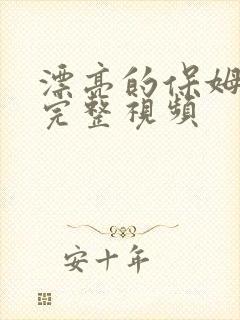 漂亮的保姆
完整視頻
安十年